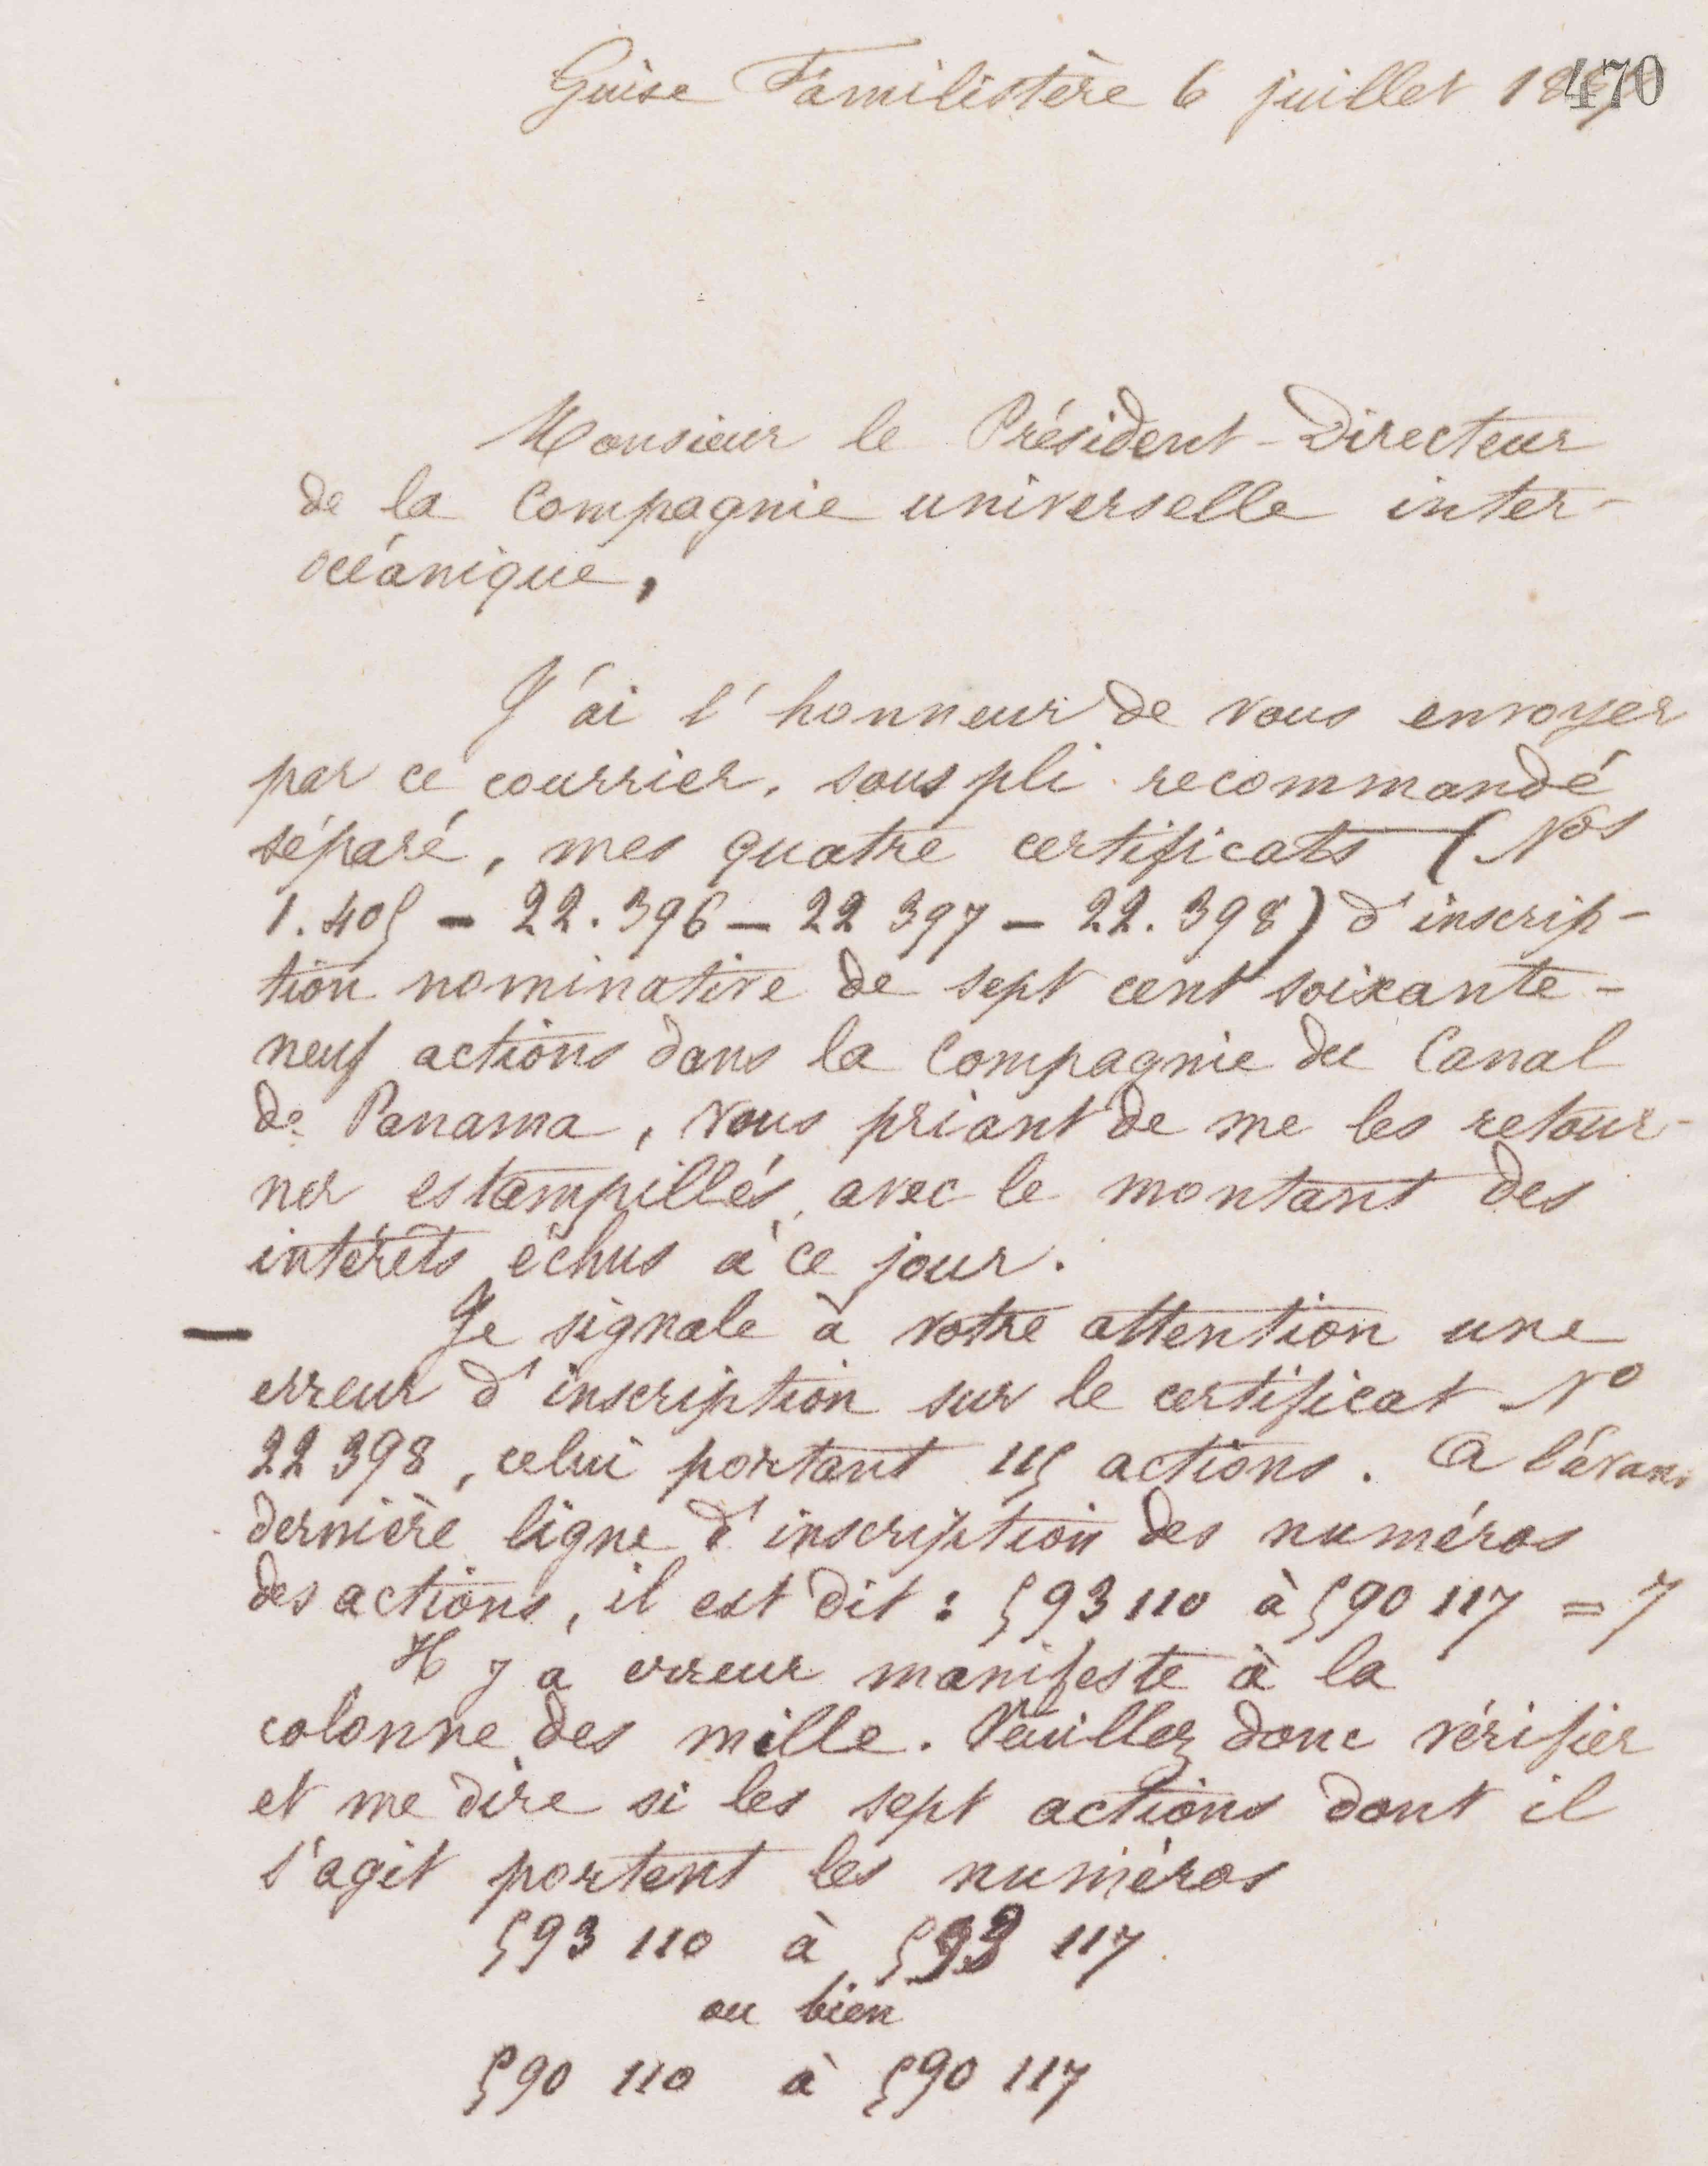 470
Guise Familistère 6 juillet
Monsieur le Président-Directeur
de la Compagnie universelle inter-
océanique,
J'ai l'honneur de vous envoyer
par ce courrier, sous pli recommandé
séparé, mes quatre certificats (Nos
1.405 - 22.396 - 22 397 - 22.398) d'inscrip-
tion nominative de sept cent soixante-
neuf actions dans la Compagnie du Canal
de Panama, vous priant de me les retour-
ner estampillés, avec le montant des
intérêts échus à ce jour.
- Je signale à votre attention une
erreur d'inscription sur le certificat No
22 398, celui portant 115 actions. A l'avant
dernière ligne d'inscription des numéros
des actions, il est dit : 593 110 à 590 117 = 7
Il y a erreur manifeste à la
colonne des mille. Veuillez donc vérifier
et me dire si les sept actions dont il
s'agit portent les numéros
593 110 à 593 117
ou bien
590 110 à 590 117